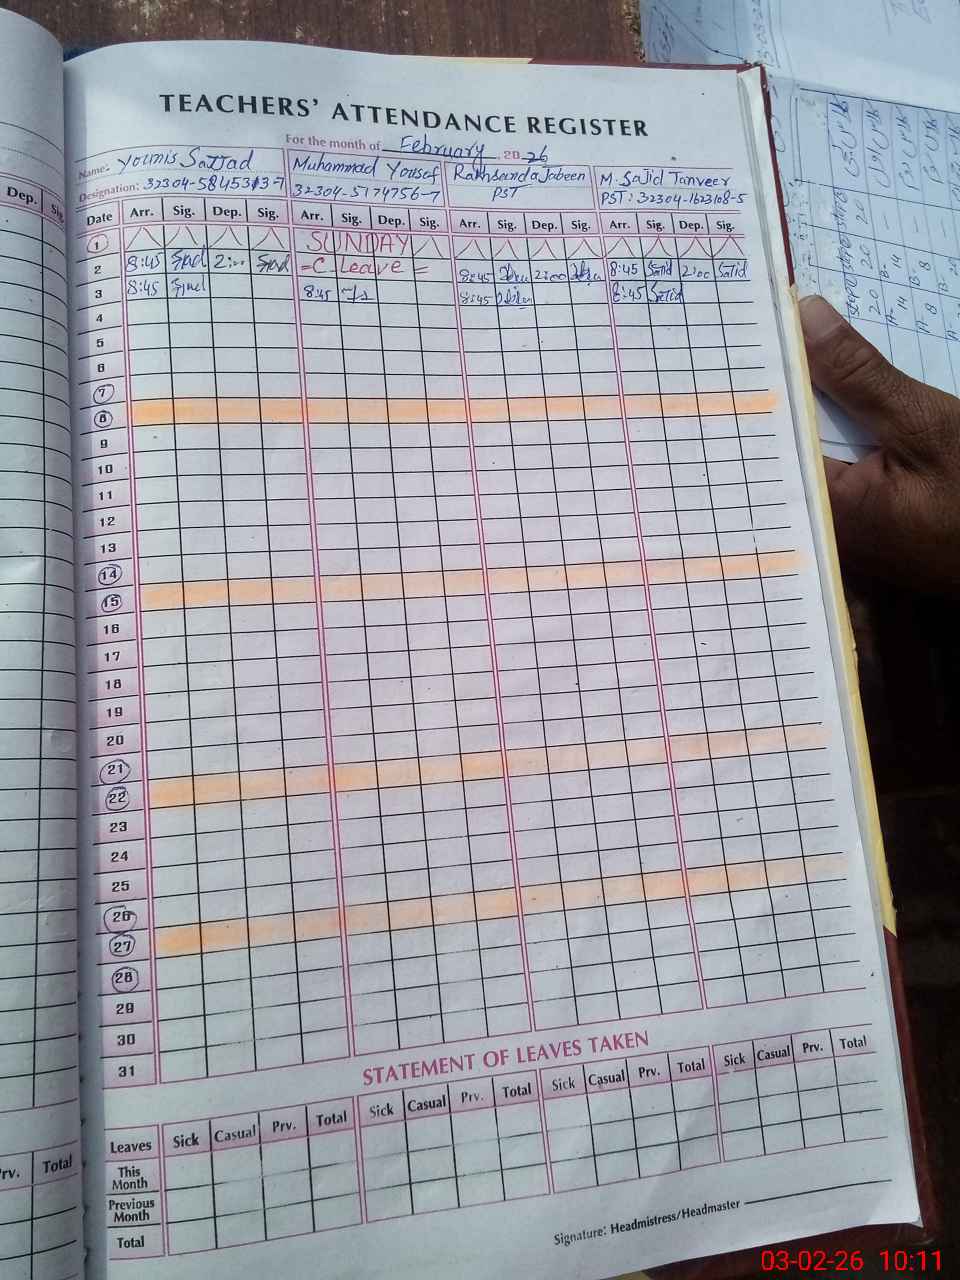 TEACHERS' ATTENDANCE REGISTER
For the month of February 2026
Name: Younis Sajjad Muhammad Yousaf Rakhseenda Jabeen M. Sajid Tanveer
Designation: 32304-5845313-7 32304-5174756-7 PST PST: 32304-1623108-5
Dep. Sig.
Date Arr. Sig. Dep. Sig. Arr. Sig. Dep. Sig. Arr. Sig. Dep. Sig. Arr. Sig. Dep. Sig.
1 SUNDAY
2 8:45 2:00 = C. Leave = 8:45 2:00 8:45 Sajid 2:00 Sajid
3 8:45 8:45 8:45 8:45 Sajid
4
5
6
7
8
9
10
11
12
13
14
15
16
17
18
19
20
21
22
23
24
25
26
27
28
29
30
31
STATEMENT OF LEAVES TAKEN
Leaves Sick Casual Prv. Total Sick Casual Prv. Total Sick Casual Prv. Total Sick Casual Prv. Total
Prv. Total
This Month
Previous Month
Total
Signature: Headmistress/Headmaster
03-02-26 10:11